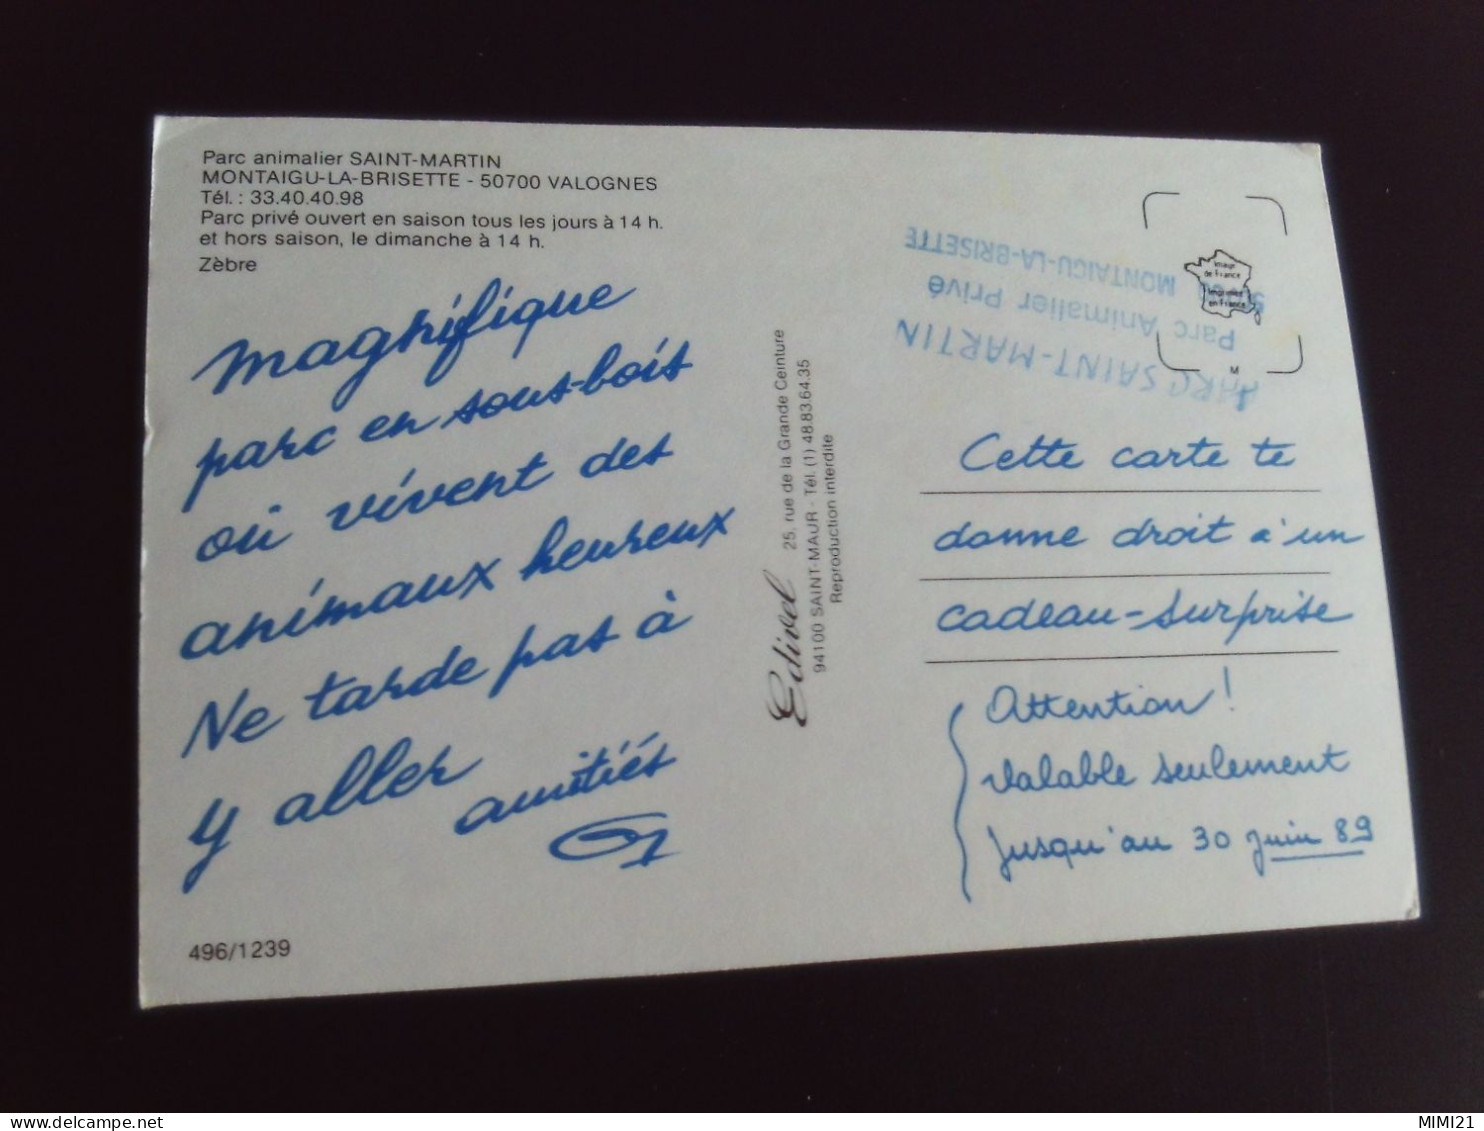 Parc animalier SAINT-MARTIN
MONTAIGU-LA-BRISETTE - 50700 VALOGNES
Tél. : 33.40.40.98
Parc privé ouvert en saison tous les jours à 14 h.
et hors saison, le dimanche à 14 h.
Zèbre
magnifique
parc en sous-bois
où vivent des
animaux heureux
Ne tarde pas à
y aller
amitiés
496/1239
Edivel
25, rue de la Grande Ceinture
94100 SAINT-MAUR - Tél. (1) 48.83.64.35
Reproduction interdite
PARC SAINT-MARTIN
Parc Animalier Privé
MONTAIGU-LA-BRISETTE
image
de France
imprimée
en France
M
Cette carte te
donne droit à un
cadeau-surprise
Attention !
valable seulement
jusqu'au 30 juin 89
MIMI21